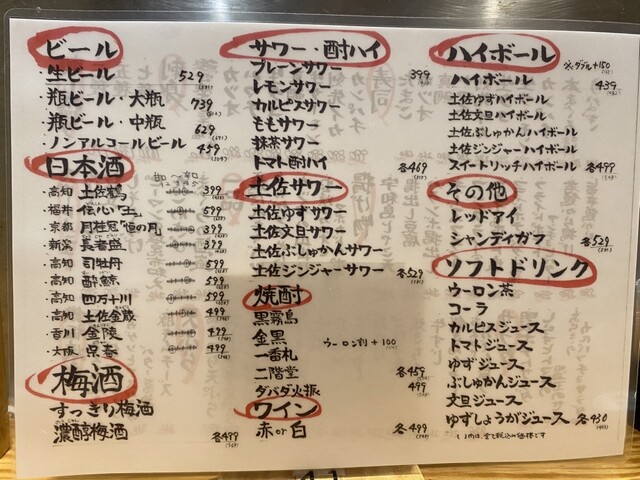 ビール
・生ビール 529
・瓶ビール・大瓶 739
・瓶ビール・中瓶 629
・ノンアルコールビール 459
日本酒
甘口〜辛口
・高知 土佐鶴 399
・福井 伝心「土」 599
・京都 月桂冠「恒の月」 399
・新潟 長者盛 399
・高知 司牡丹 599
・高知 酔鯨 599
・高知 四万十川 599
・高知 土佐金蔵 499
・香川 金陵 499
・大阪 呉春 499
梅酒
すっきり梅酒
濃醇梅酒 各499
サワー・酎ハイ
プレーンサワー 399
レモンサワー
カルピスサワー
ももサワー
抹茶サワー
トマト酎ハイ 各469
土佐サワー
土佐ゆずサワー
土佐文旦サワー
土佐ぶしゅかんサワー
土佐ジンジャーサワー 各529
焼酎
黒霧島
金黒 ウーロン割+100
一番札
二階堂 各459
ダバダ火振 499
ワイン
赤or白 各499
ハイボール
ダブル+150
ハイボール 439
土佐ゆずハイボール
土佐文旦ハイボール
土佐ぶしゅかんハイボール
土佐ジンジャーハイボール
スイートリッチハイボール 各499
その他
レッドアイ
シャンディガフ 各529
ソフトドリンク
ウーロン茶
コーラ
カルピスジュース
トマトジュース
ゆずジュース
ぶしゅかんジュース
文旦ジュース
ゆずしょうがジュース 各430
( )内は、全て税込み価格です